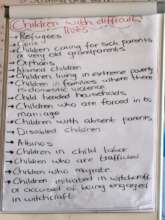 Children with difficult
lives
→ Refugees
→ Children caring for sick parents
or very old grandparents
→ Orphans
→ Children living in extreme poverty
→ Children in families where there
is domestic violence
→ Child headed households
→ Children who are forced in to
marriage
→ Children with absent parents
→ Disabled children
→ Albinos
→ Children in child labor
→ Children who are trafficked
→ Children who migrate
→ Children initiated in witchcraft
or accused of being engaged
in witchcraft.